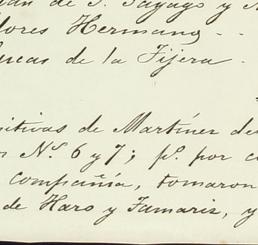 de S. Sayago y
lores Hermano --
uecas de la Tijera.
sitivas de Martínez de
Nos. 6 y 7; pr. por c
compañía, tomaron
de Haro y Tamariz, y